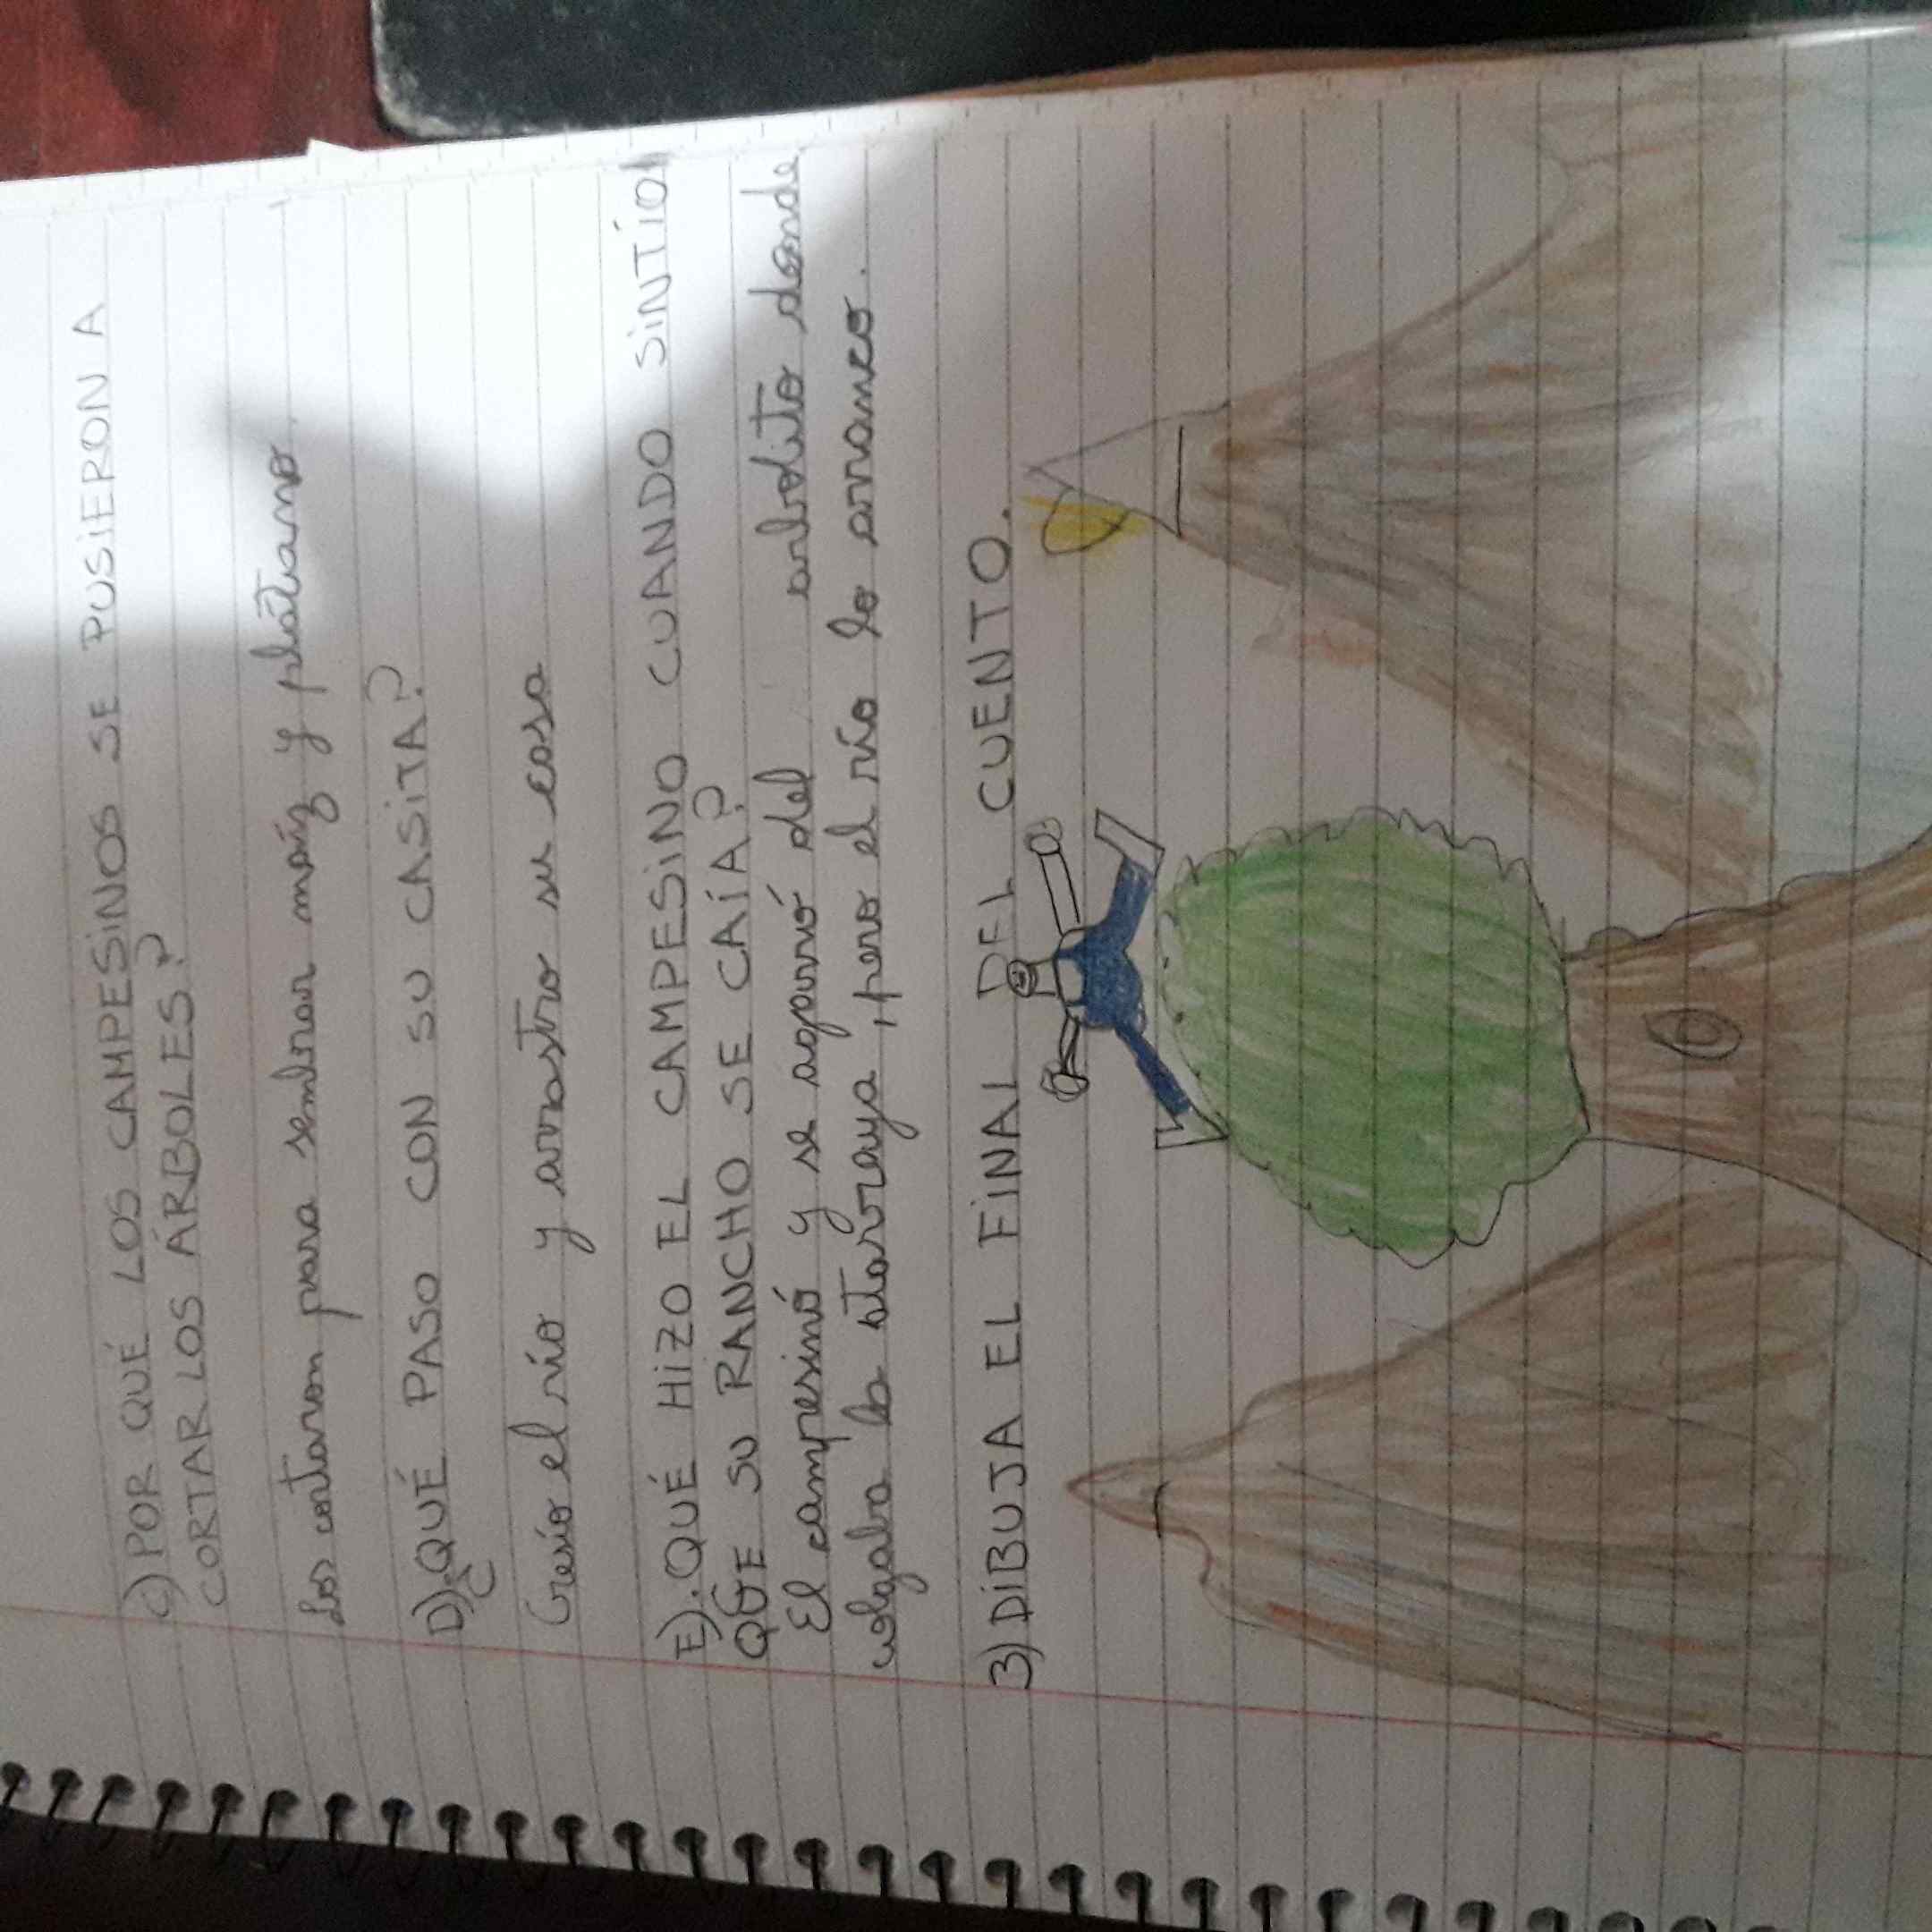 C) POR QUÉ LOS CAMPESINOS SE PUSIERON A
CORTAR LOS ÁRBOLES?
Los cortaron para sembrar maíz y plátano
D) ¿QUÉ PASO CON SU CASITA?
Cresio el río y arrastro su casa
E). QUÉ HIZO EL CAMPESINO CUANDO SINTIO
QUE SU RANCHO SE CAÍA?
El campesinó y se agarró del arbolito donde
colgaba la atarraya, pero el río lo arranco.
3) DIBUJA EL FINAL DEL CUENTO.